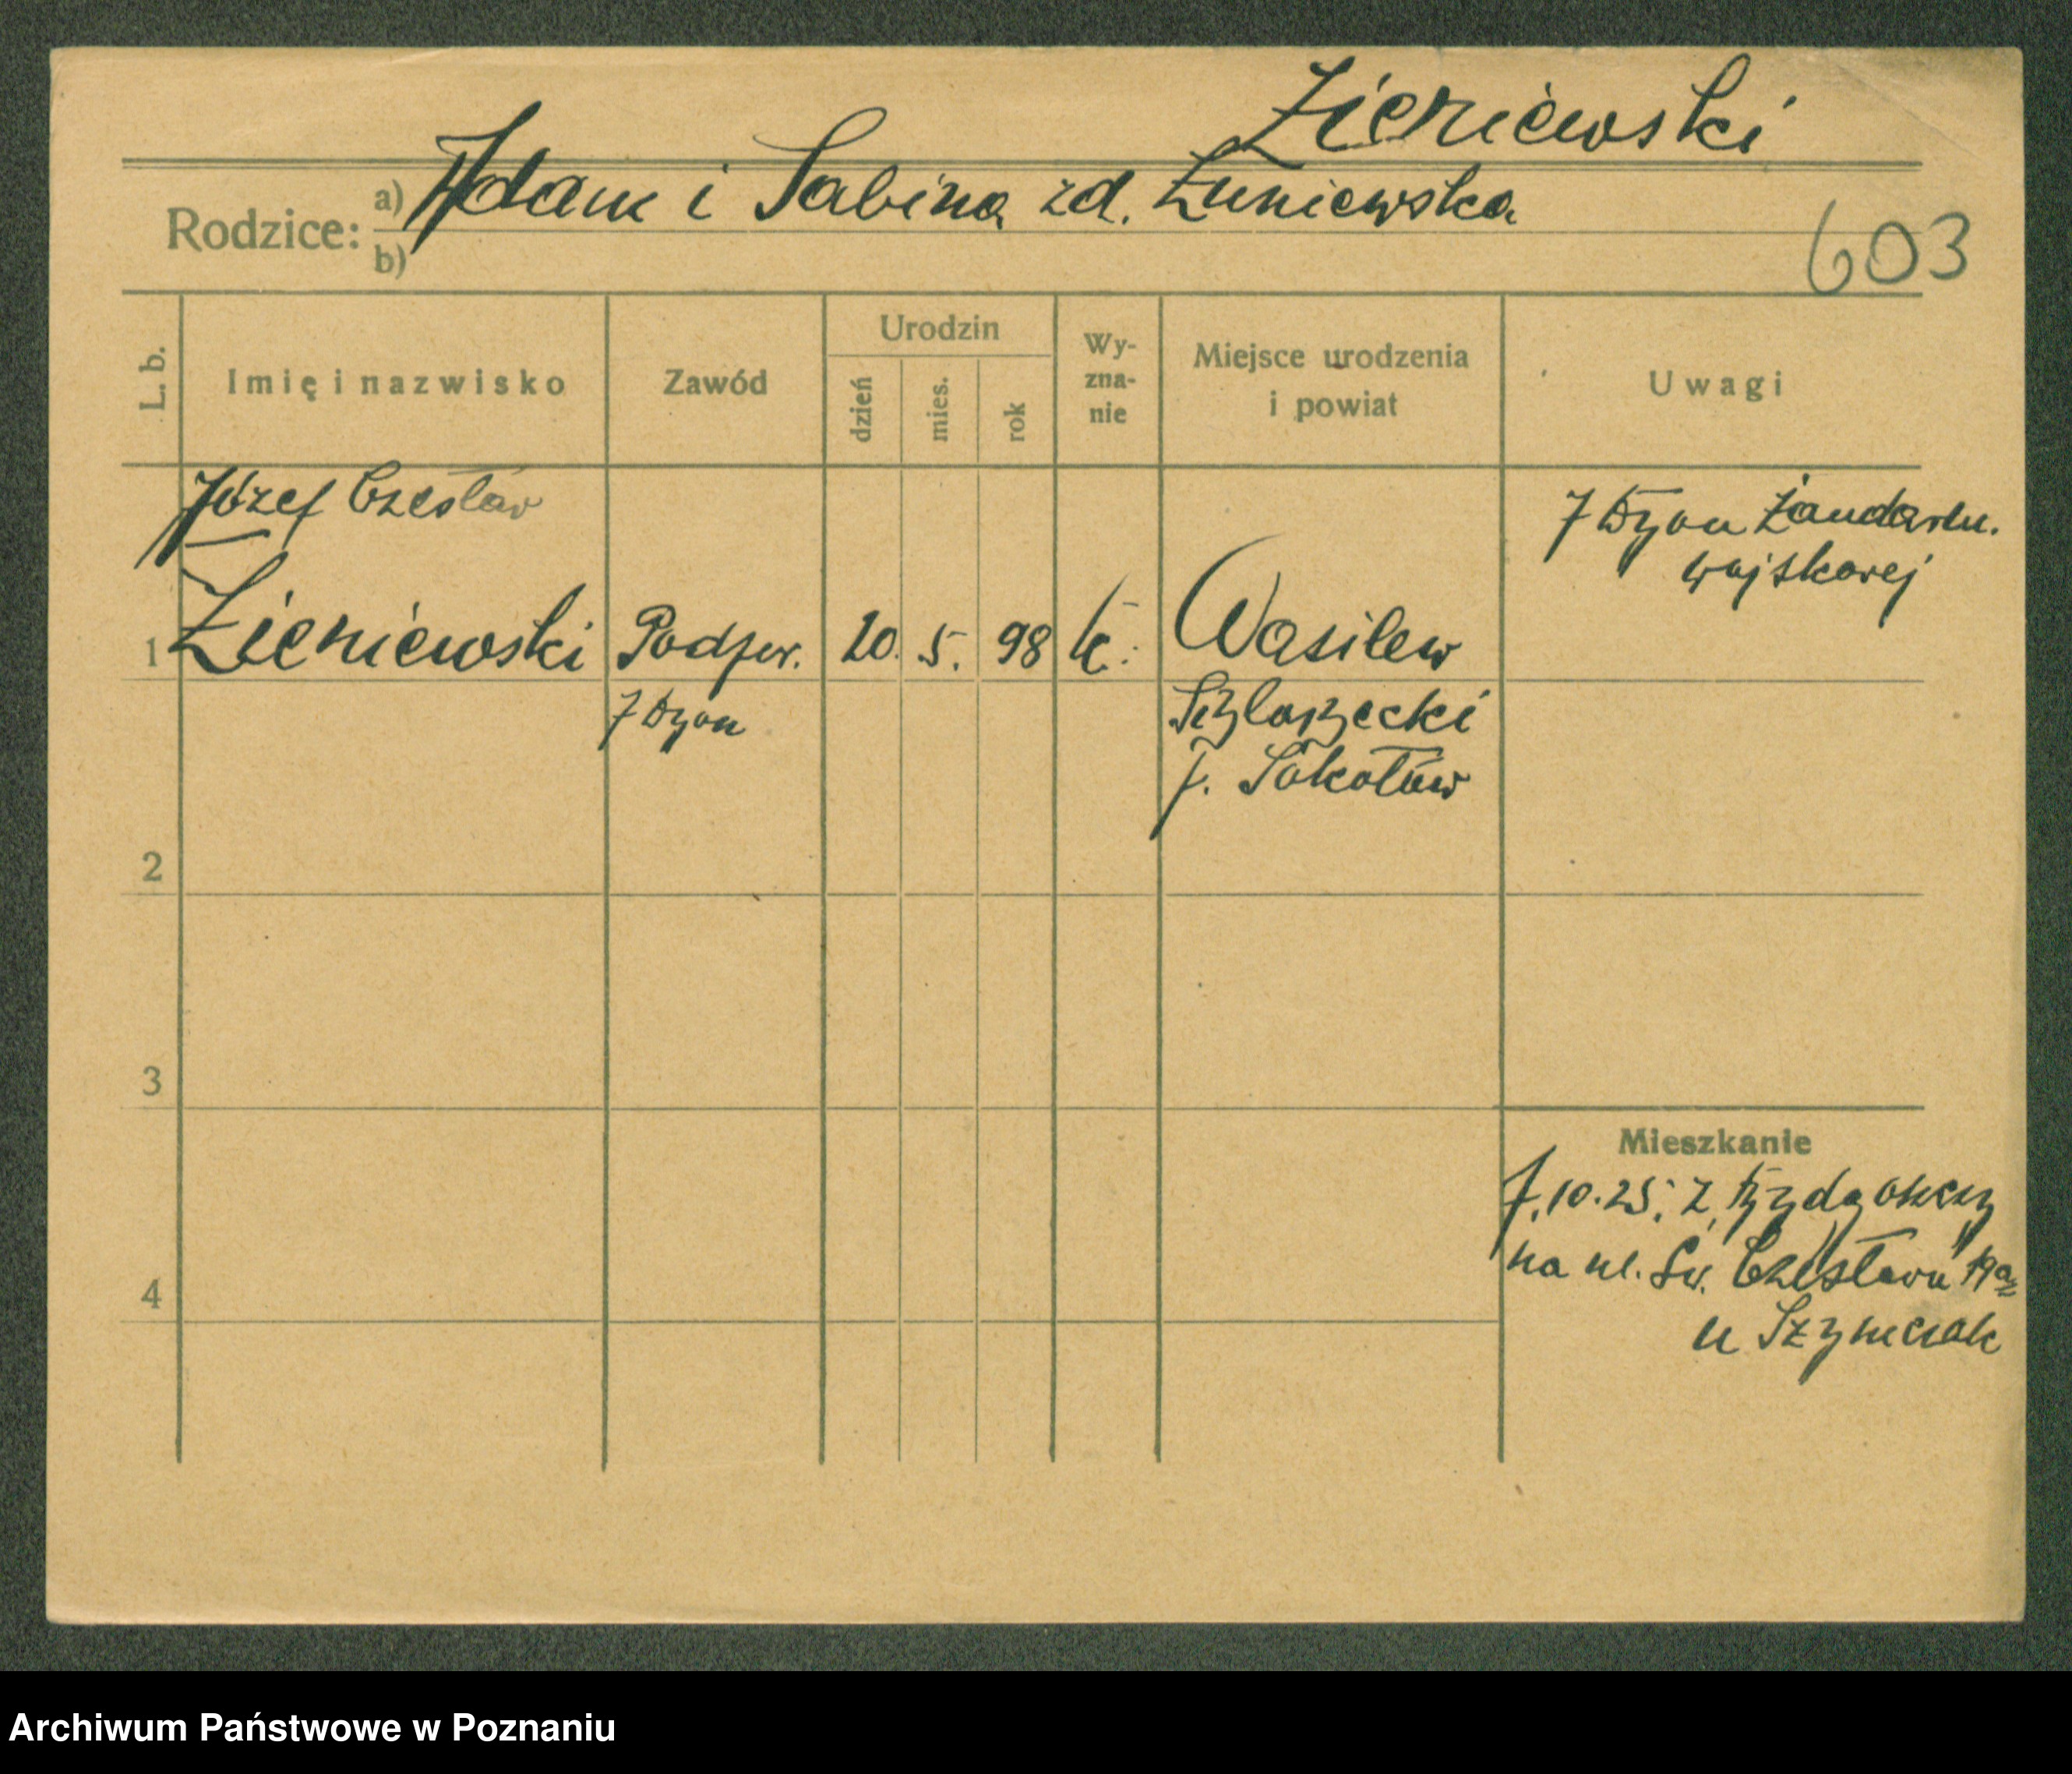 Zieniewski
Rodzice: a) Adam i Sabina zd. Zuniewska
b)
603
L. b.
Imię i nazwisko
Zawód
Urodzin
dzień
mies.
rok
Wy-
zna-
nie
Miejsce urodzenia
i powiat
Uwagi
Józef Czesław
7 Dyon Żandarm.
wojskowej
1 Zieniewski Podpor. 20. 5. 98 k. Wasilew
7 Dyon Szlarzecki
p. Sokołów
2
3
Mieszkanie
7.10.25. z Bydgoszczy
na ul. Św. Czesława 19a
4
u Szymczak
Archiwum Państwowe w Poznaniu